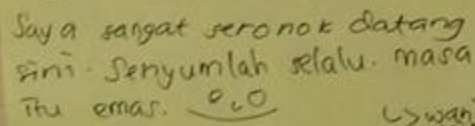 Saya sangat seronok datang
sini. Senyumlah selalu. masa
itu emas.
↳wani